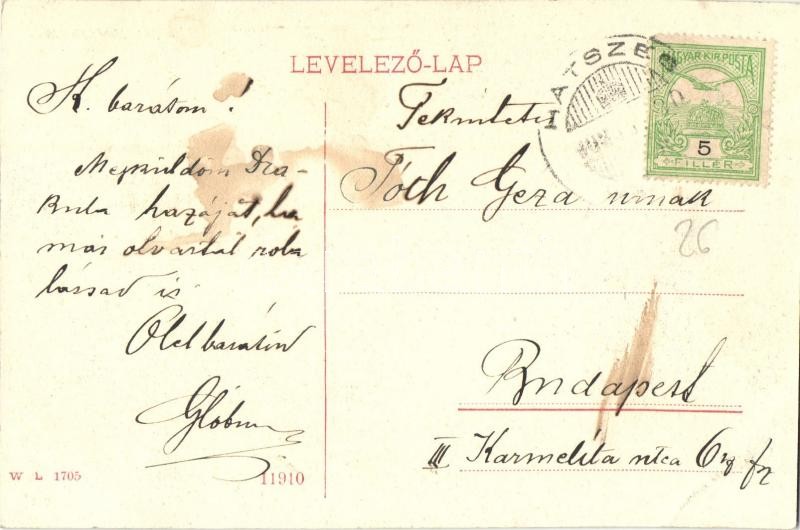 LEVELEZŐ-LAP
HATSZE
MAGYAR KIR. POSTA
5
FILLÉR
K. barátom!
Megküldöm Dra-
kula hazáját, ha
már olvastál róla
lássad is
Ölel barátod
Tekintetes
Tóth Geza urnak
26
Budapest
III Karmelita utca 6
W L 1705
11910